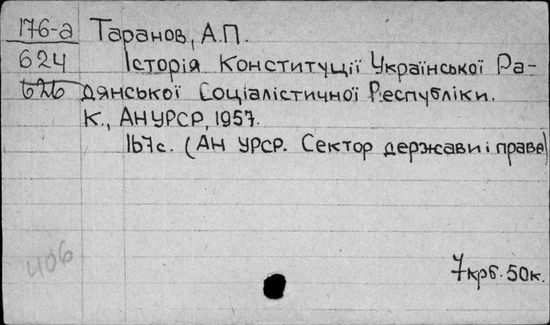 176-а Таранов, А.П.
624 Історія Конституції Української Ра-
626 дянської Соціалістичної Республіки.
К., АН УРСР, 1957.
167с. (АН УРСР. Сектор держави і права)
406
7крб. 50к.